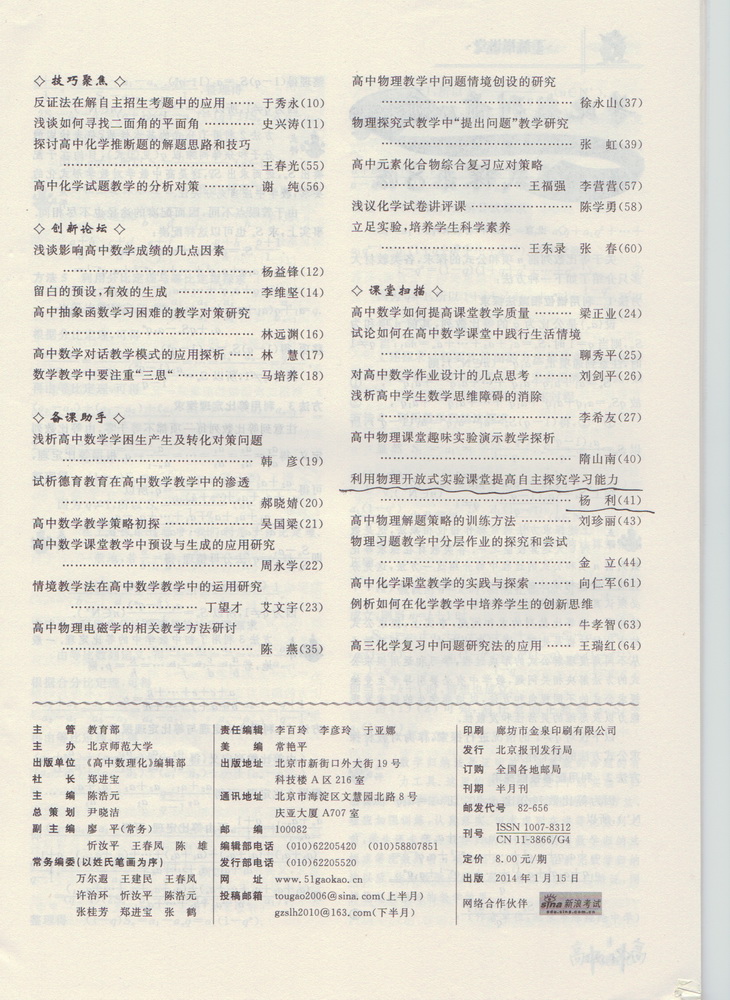 ◇ 技巧聚焦 ◇
反证法在解自主招生考题中的应用 …… 于秀永(10)
浅谈如何寻找二面角的平面角 ………… 史兴涛(11)
探讨高中化学推断题的解题思路和技巧
………………………………………… 王春光(55)
高中化学试题教学的分析对策 ………… 谢　纯(56)
◇ 创新论坛 ◇
浅谈影响高中数学成绩的几点因素
………………………………………… 杨益锋(12)
留白的预设,有效的生成 ……………… 李维坚(14)
高中抽象函数学习困难的教学对策研究
………………………………………… 林远渊(16)
高中数学对话教学模式的应用探析 …… 林　慧(17)
数学教学中要注重“三思“ …………… 马培养(18)
◇ 备课助手 ◇
浅析高中数学学困生产生及转化对策问题
………………………………………… 韩　彦(19)
试析德育教育在高中数学教学中的渗透
………………………………………… 郝晓婧(20)
高中数学教学策略初探 ………………… 吴国梁(21)
高中数学课堂教学中预设与生成的应用研究
………………………………………… 周永学(22)
情境教学法在高中数学教学中的运用研究
……………………… 丁望才　艾文宇(23)
高中物理电磁学的相关教学方法研讨
………………………………………… 陈　燕(35)
高中物理教学中问题情境创设的研究
………………………………………… 徐永山(37)
物理探究式教学中“提出问题”教学研究
………………………………………… 张　虹(39)
高中元素化合物综合复习应对策略
……………………… 王福强　李营营(57)
浅议化学试卷讲评课 …………………… 陈学勇(58)
立足实验,培养学生科学素养
……………………… 王东录　张　春(60)
◇ 课堂扫描 ◇
高中数学如何提高课堂教学质量 ……… 梁正业(24)
试论如何在高中数学课堂中践行生活情境
………………………………………… 聊秀平(25)
对高中数学作业设计的几点思考 ……… 刘剑平(26)
浅析高中学生数学思维障碍的消除
………………………………………… 李希友(27)
高中物理课堂趣味实验演示教学探析
………………………………………… 隋山南(40)
利用物理开放式实验课堂提高自主探究学习能力
………………………………………… 杨　利(41)
高中物理解题策略的训练方法 ………… 刘珍丽(43)
物理习题教学中分层作业的探究和尝试
………………………………………… 金　立(44)
高中化学课堂教学的实践与探索 ……… 向仁军(61)
例析如何在化学教学中培养学生的创新思维
………………………………………… 牛孝智(63)
高三化学复习中问题研究法的应用 …… 王瑞红(64)
主　管 教育部
主　办 北京师范大学
出版单位 《高中数理化》编辑部
社　长 郑进宝
主　编 陈浩元
总策划 尹晓洁
副主编 廖　平(常务)
忻汝平 王春凤 陈　雄
常务编委(以姓氏笔画为序)
万尔遐 王建民 王春凤
许治环 忻汝平 陈浩元
张桂芳 郑进宝 张　鹤
责任编辑 李百玲 李彦玲 于亚娜
美　编 常艳平
出版地址 北京市新街口外大街19号
科技楼A区216室
通讯地址 北京市海淀区文慧园北路8号
庆亚大厦A707室
邮　编 100082
编辑部电话 (010)62205420 (010)58807851
发行部电话 (010)62205520
网　址 www.51gaokao.cn
投稿邮箱 tougao2006@sina.com(上半月)
gzslh2010@163.com(下半月)
印刷 廊坊市金泉印刷有限公司
发行 北京报刊发行局
订购 全国各地邮局
刊期 半月刊
邮发代号 82-656
刊号 ISSN 1007-8312
CN 11-3866/G4
定价 8.00元/期
出版 2014年1月15日
网络合作伙伴 sina新浪考试
edu.sina.com.cn